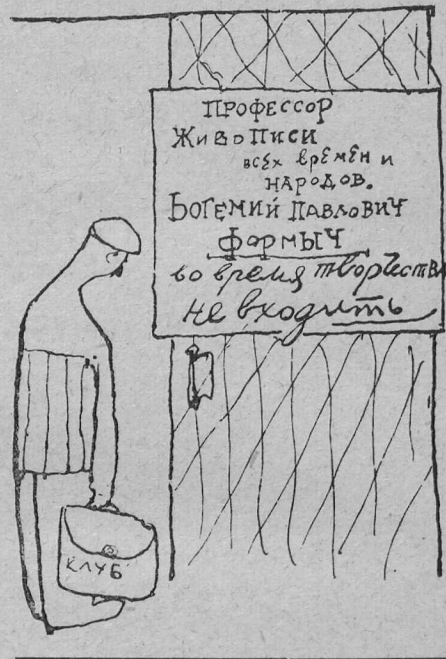 ПРОФЕССОР
ЖИВОПИСИ
всех времён и
НАРОДОВ.
БОГЕМИЙ ПАВЛОВИЧ
ФОРМЫЧ
во время творчества
не входить
КЛУБ